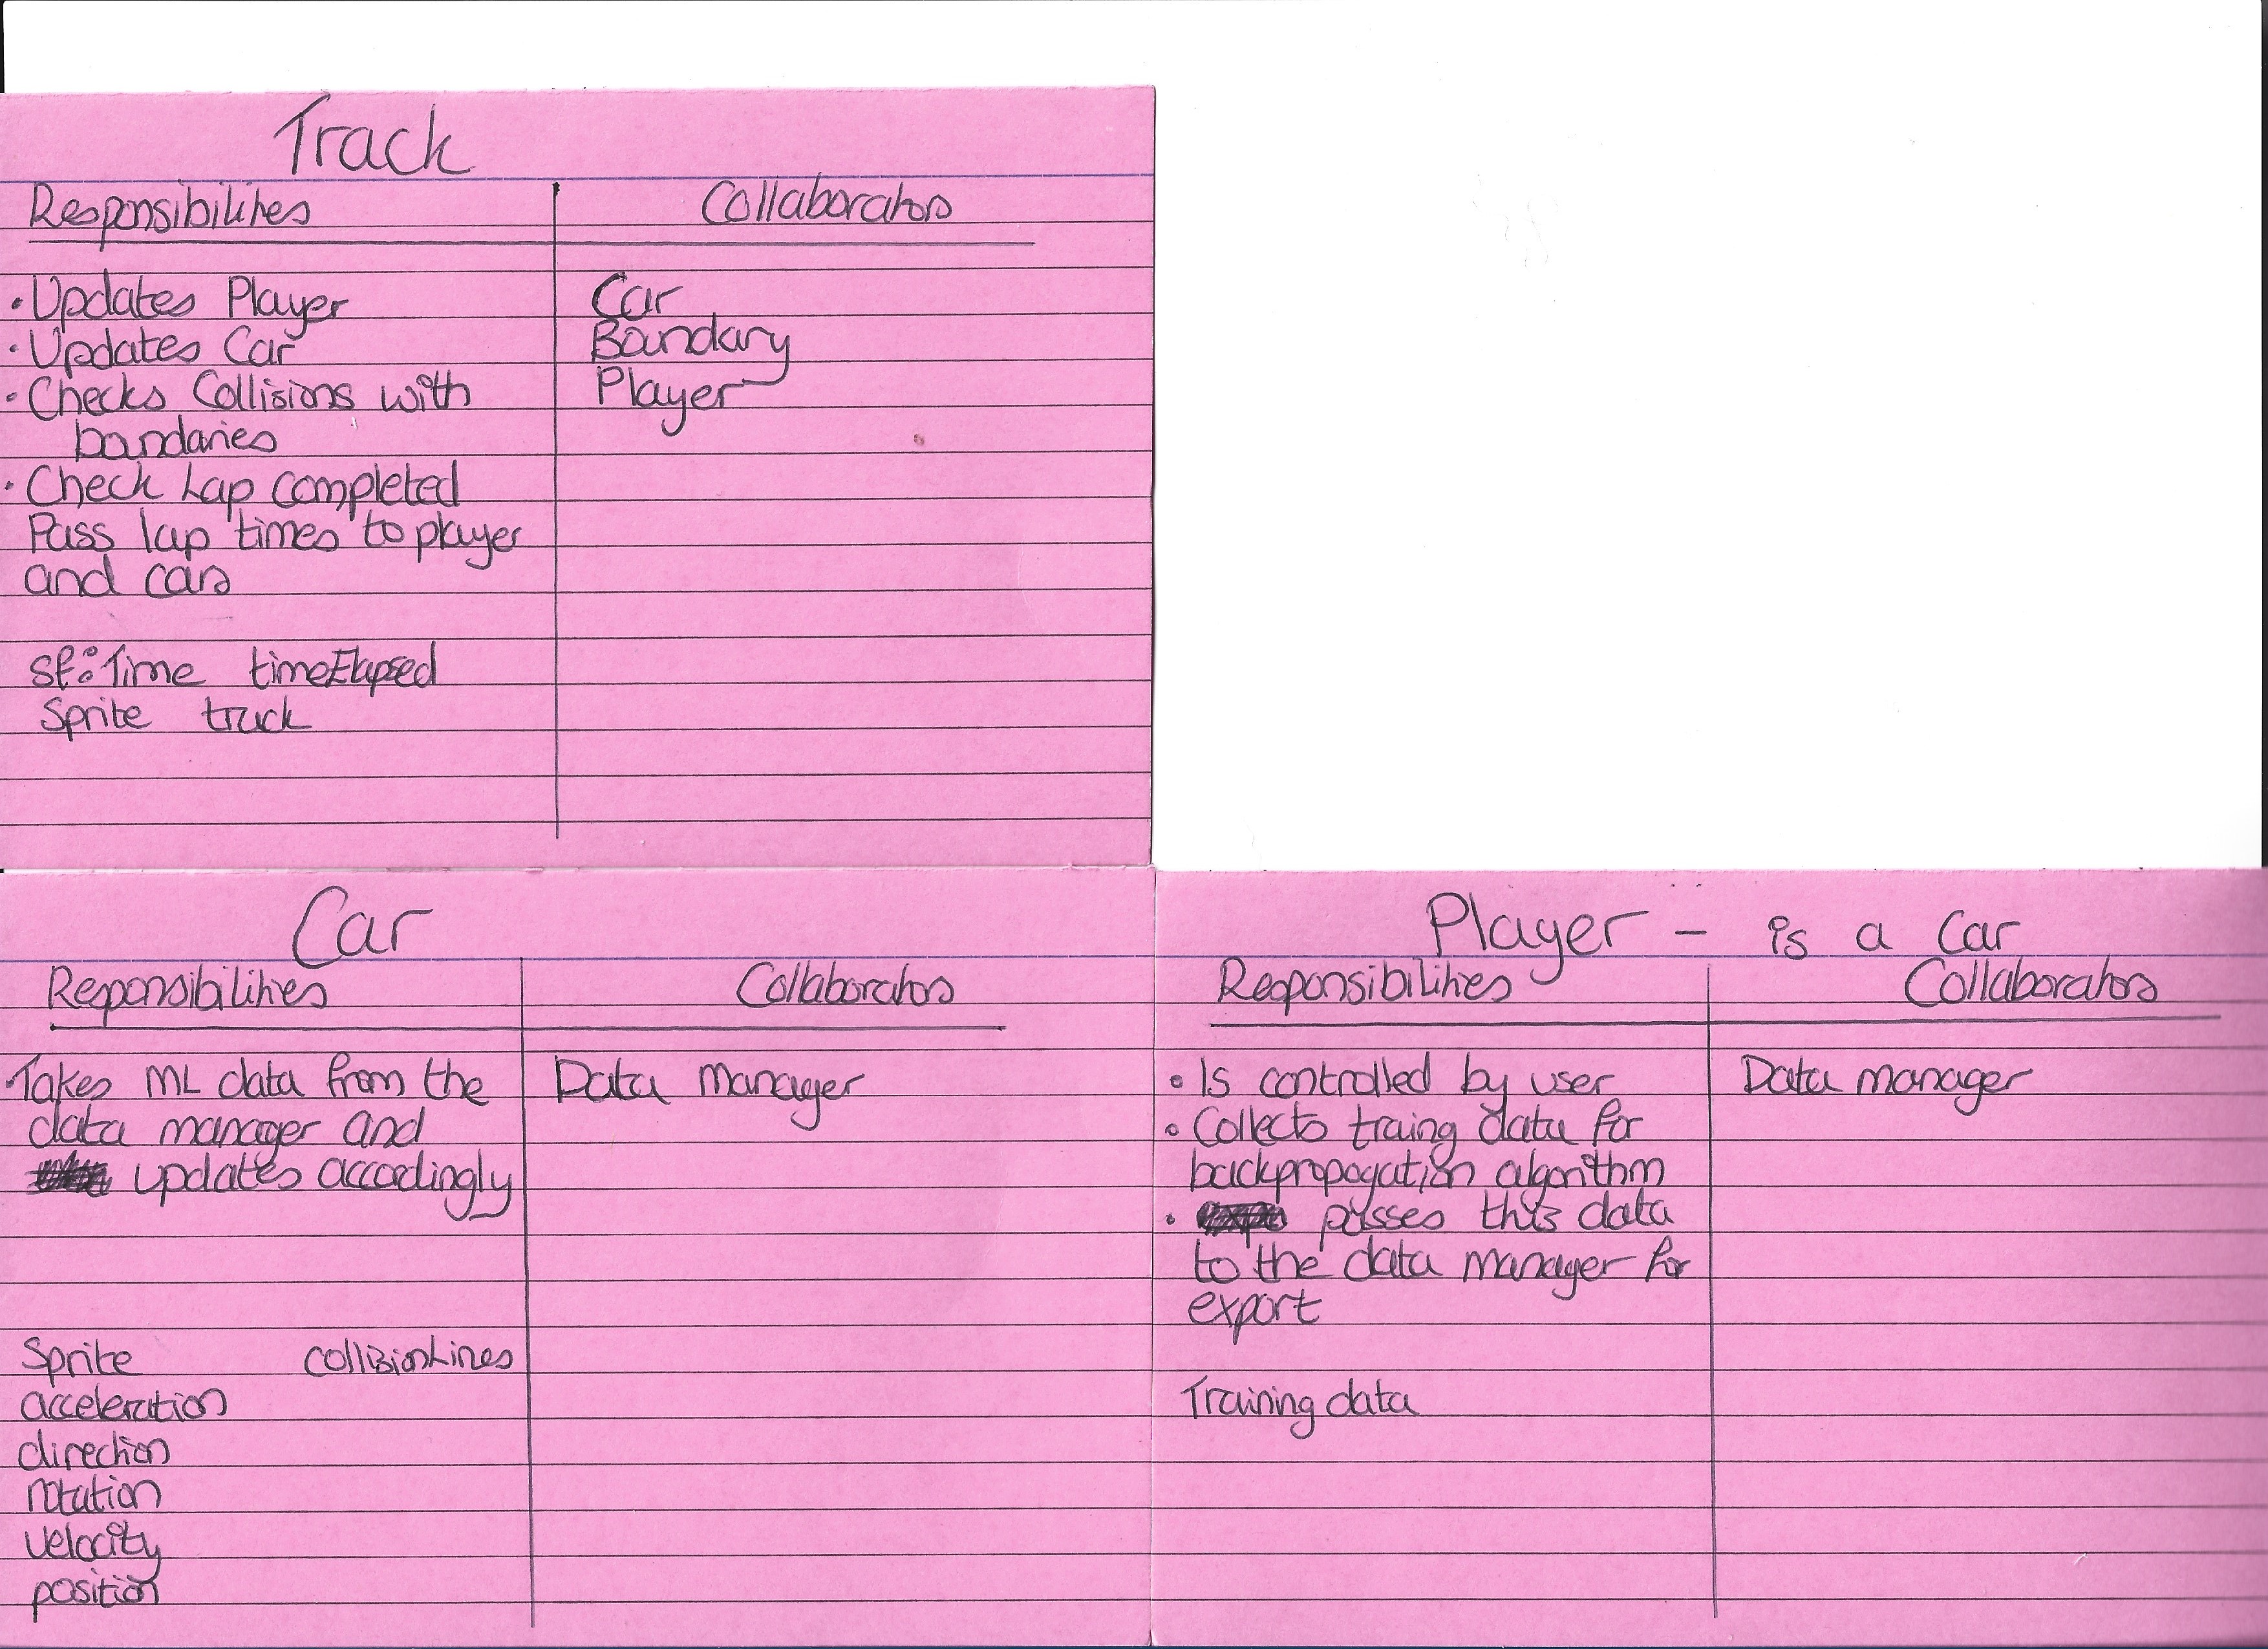 Track
Responsibilities
Collaborators
· Updates Player
· Updates Car
· Checks Collisions with
boundaries
· Check Lap completed
Pass lap times to player
and cars
sf::Time timeElapsed
Sprite track
Car
Boundary
Player
Car
Responsibilities
Collaborators
· Takes ML data from the
data manager and
updates accordingly
Sprite collisionLines
acceleration
direction
rotation
velocity
position
Data Manager
Player - is a Car
Responsibilities
Collaborators
• Is controlled by user
• Collects traing data for
backpropogation algorithm
• passes this data
to the data manager for
export
Training data
Data manager